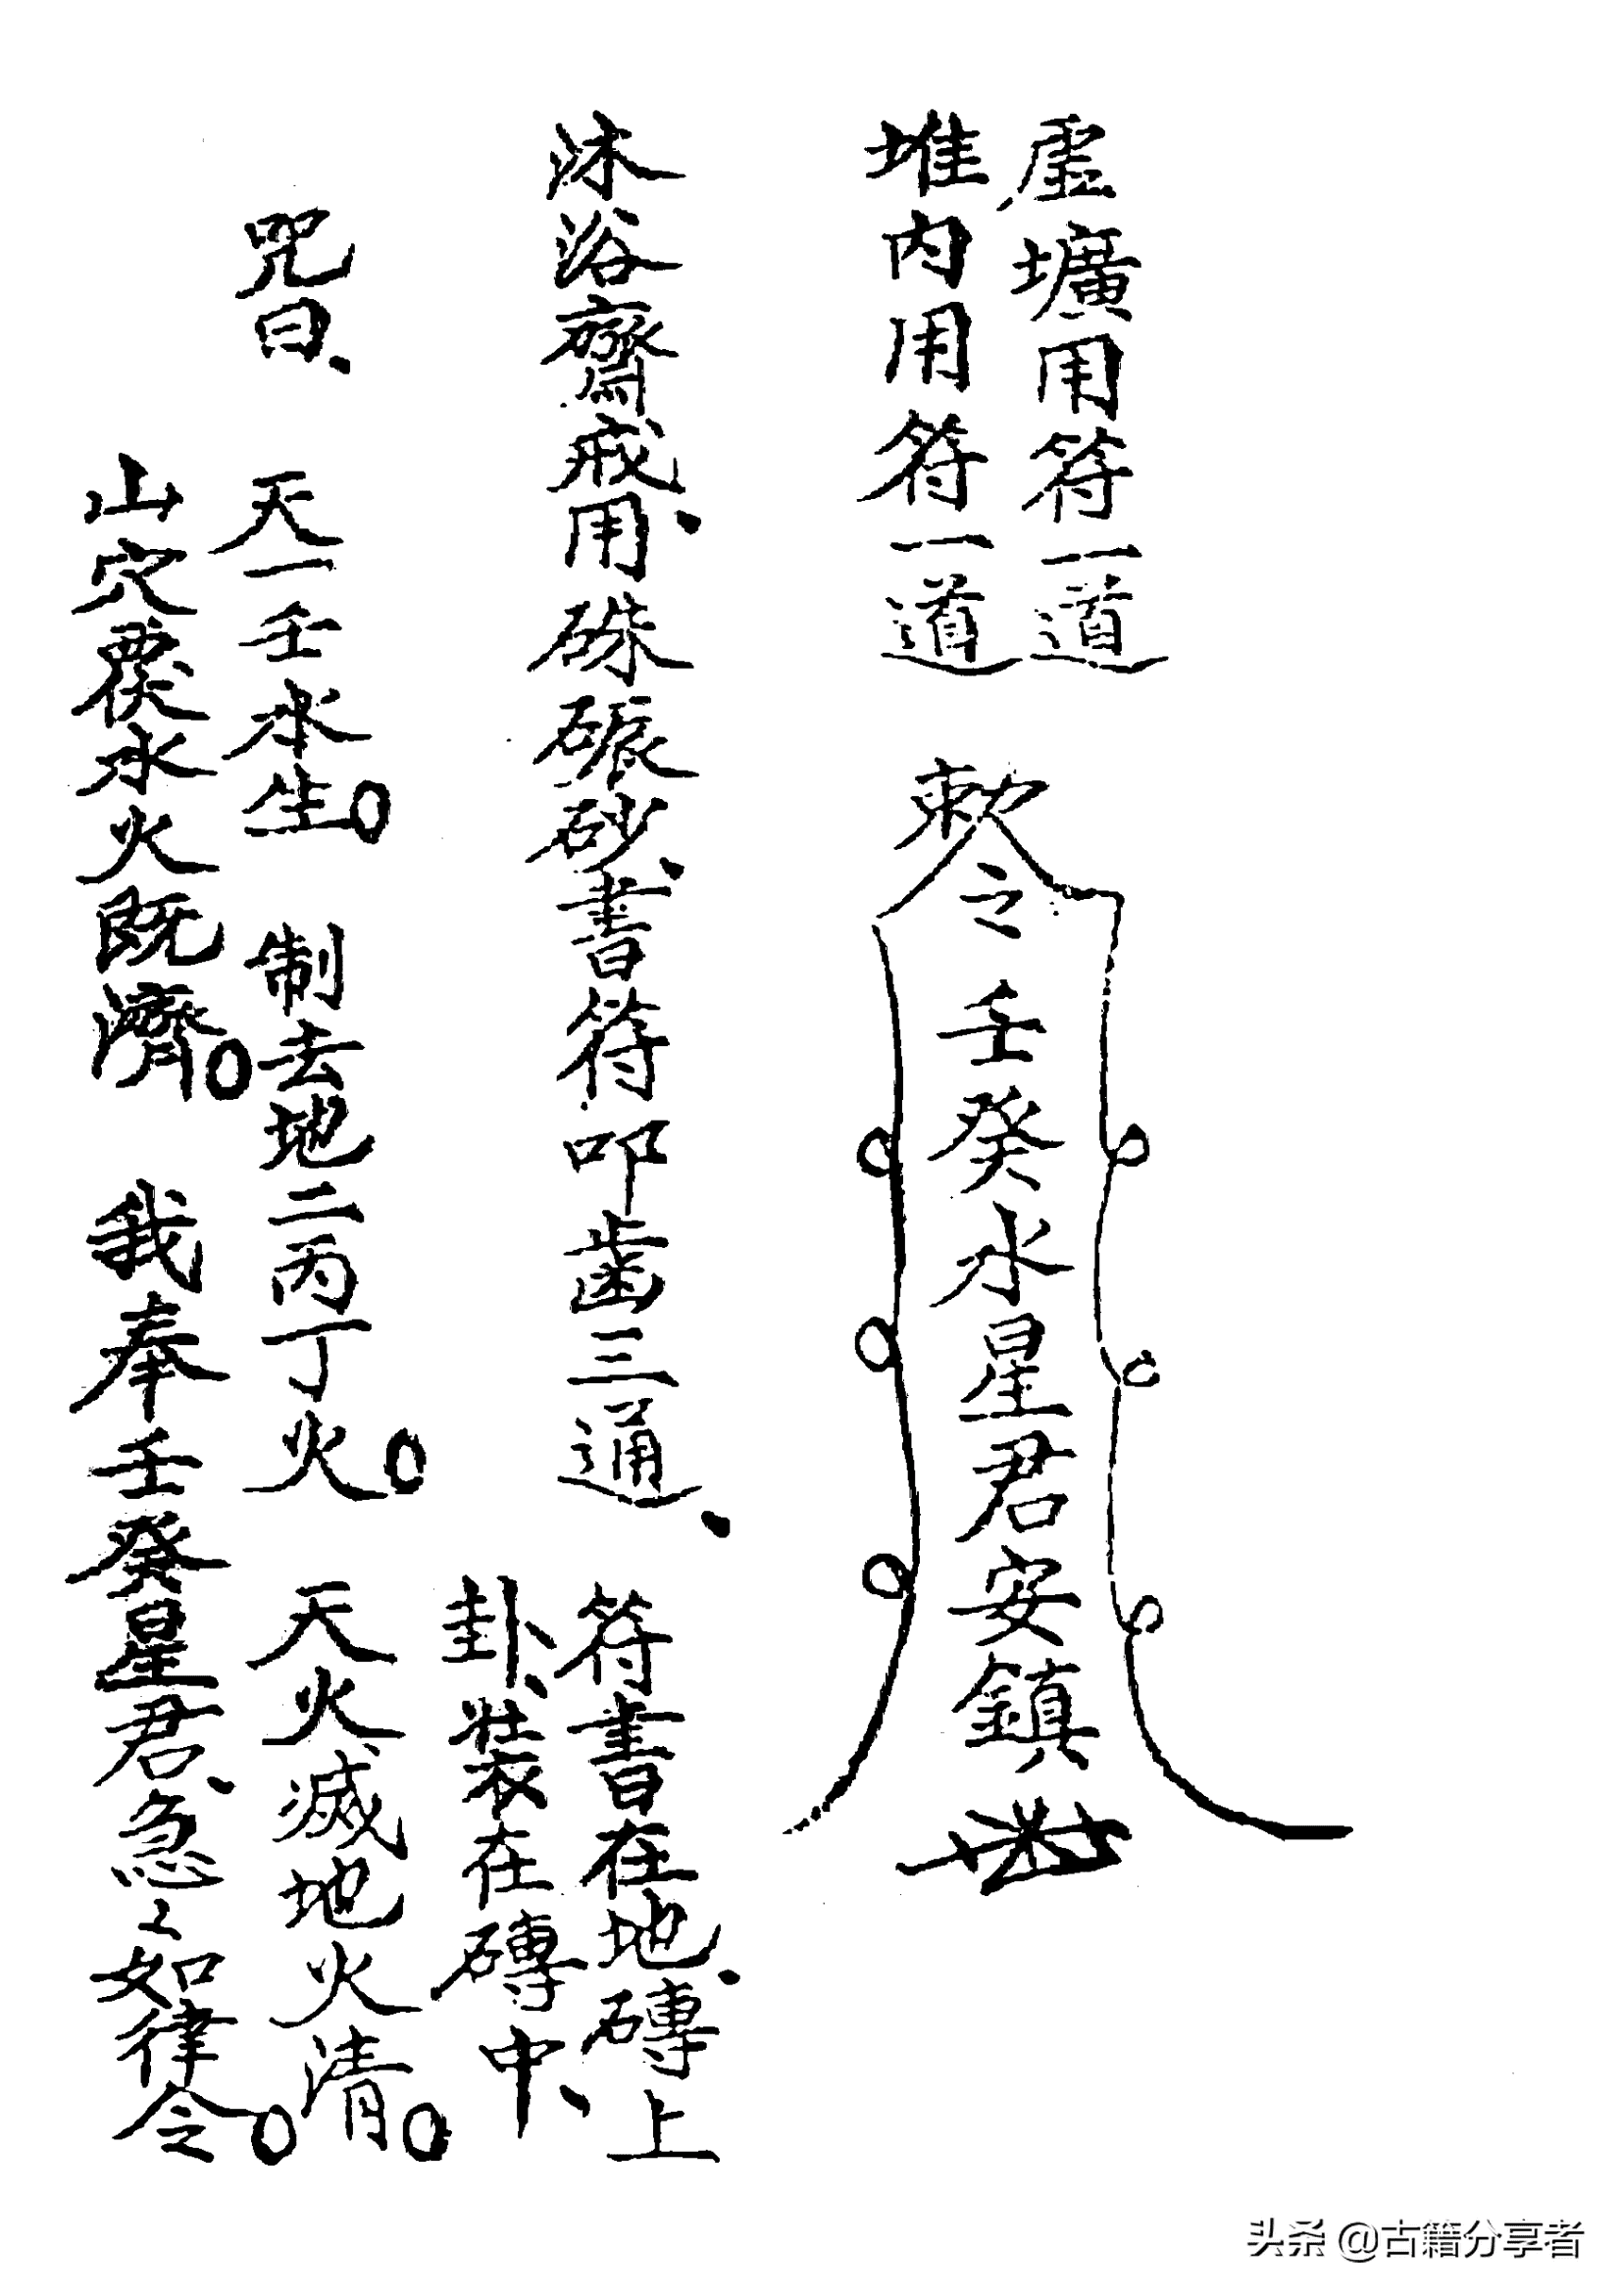 虛壙用符一道
堆内用符一道
敕令壬癸水星君安鎮
沐浴齋戒、用硃碾砂、書符叩齒三通、
符書在地、磚上
卦、裝在磚中、
咒曰、天一壬水生。制去地二丙丁火。天火滅地火清。
山穴覆水火既濟。我奉壬癸星君、急々如律令。
头条 @古籍分享者